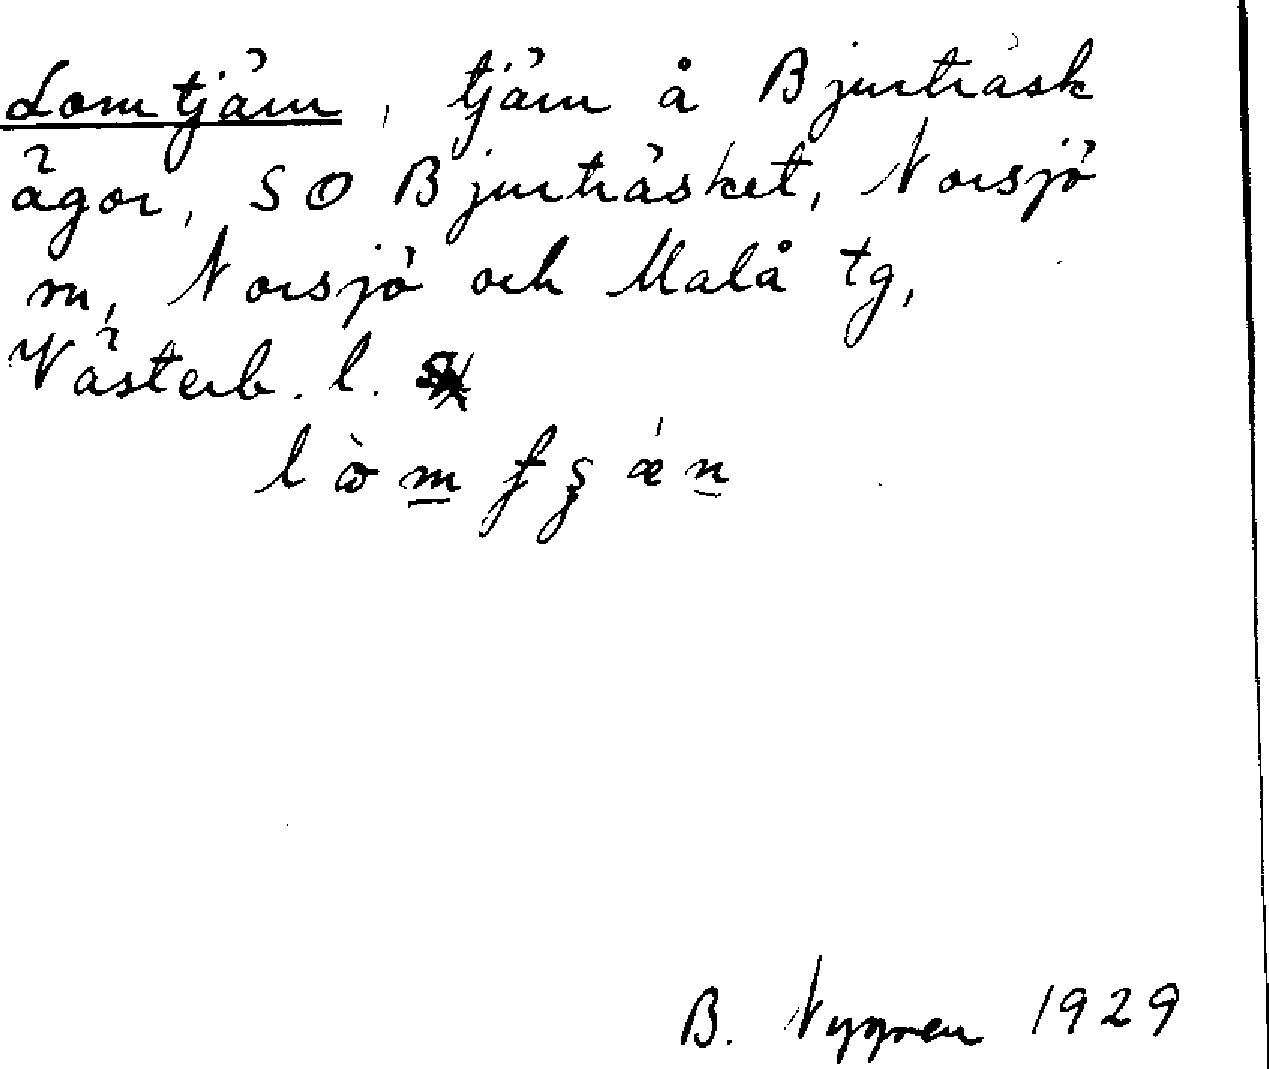 Lomtjärn, tjärn å Bjurträsk
ägor, SO Bjurträsket, Norsjö
sn, Norsjö och Malå tg,
Västerb. l.
B. Nygren 1929